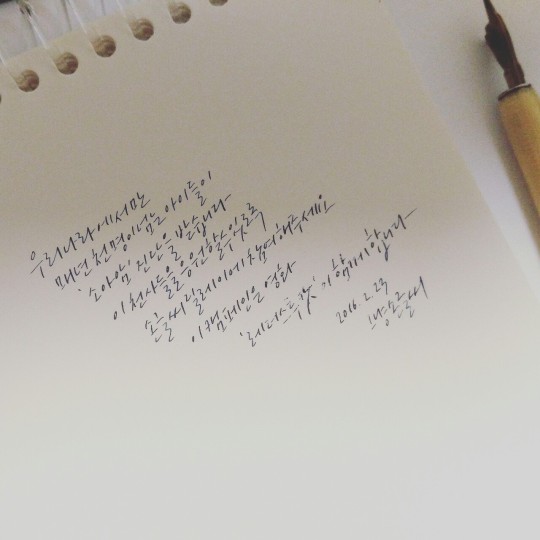 우리나라에서만
매년 천명이 넘는 아이들이
'소아암' 진단을 받습니다
이 천사들을 응원할 수 있도록
손글씨 릴레이에 참여해주세요
이 캠페인은 영화
'레터스 투 갓'가 함께합니다
2016. 2. 23
손글씨